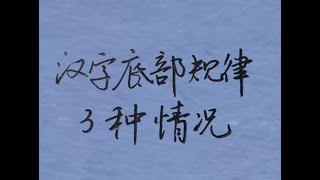 汉字底部规律
3种情况